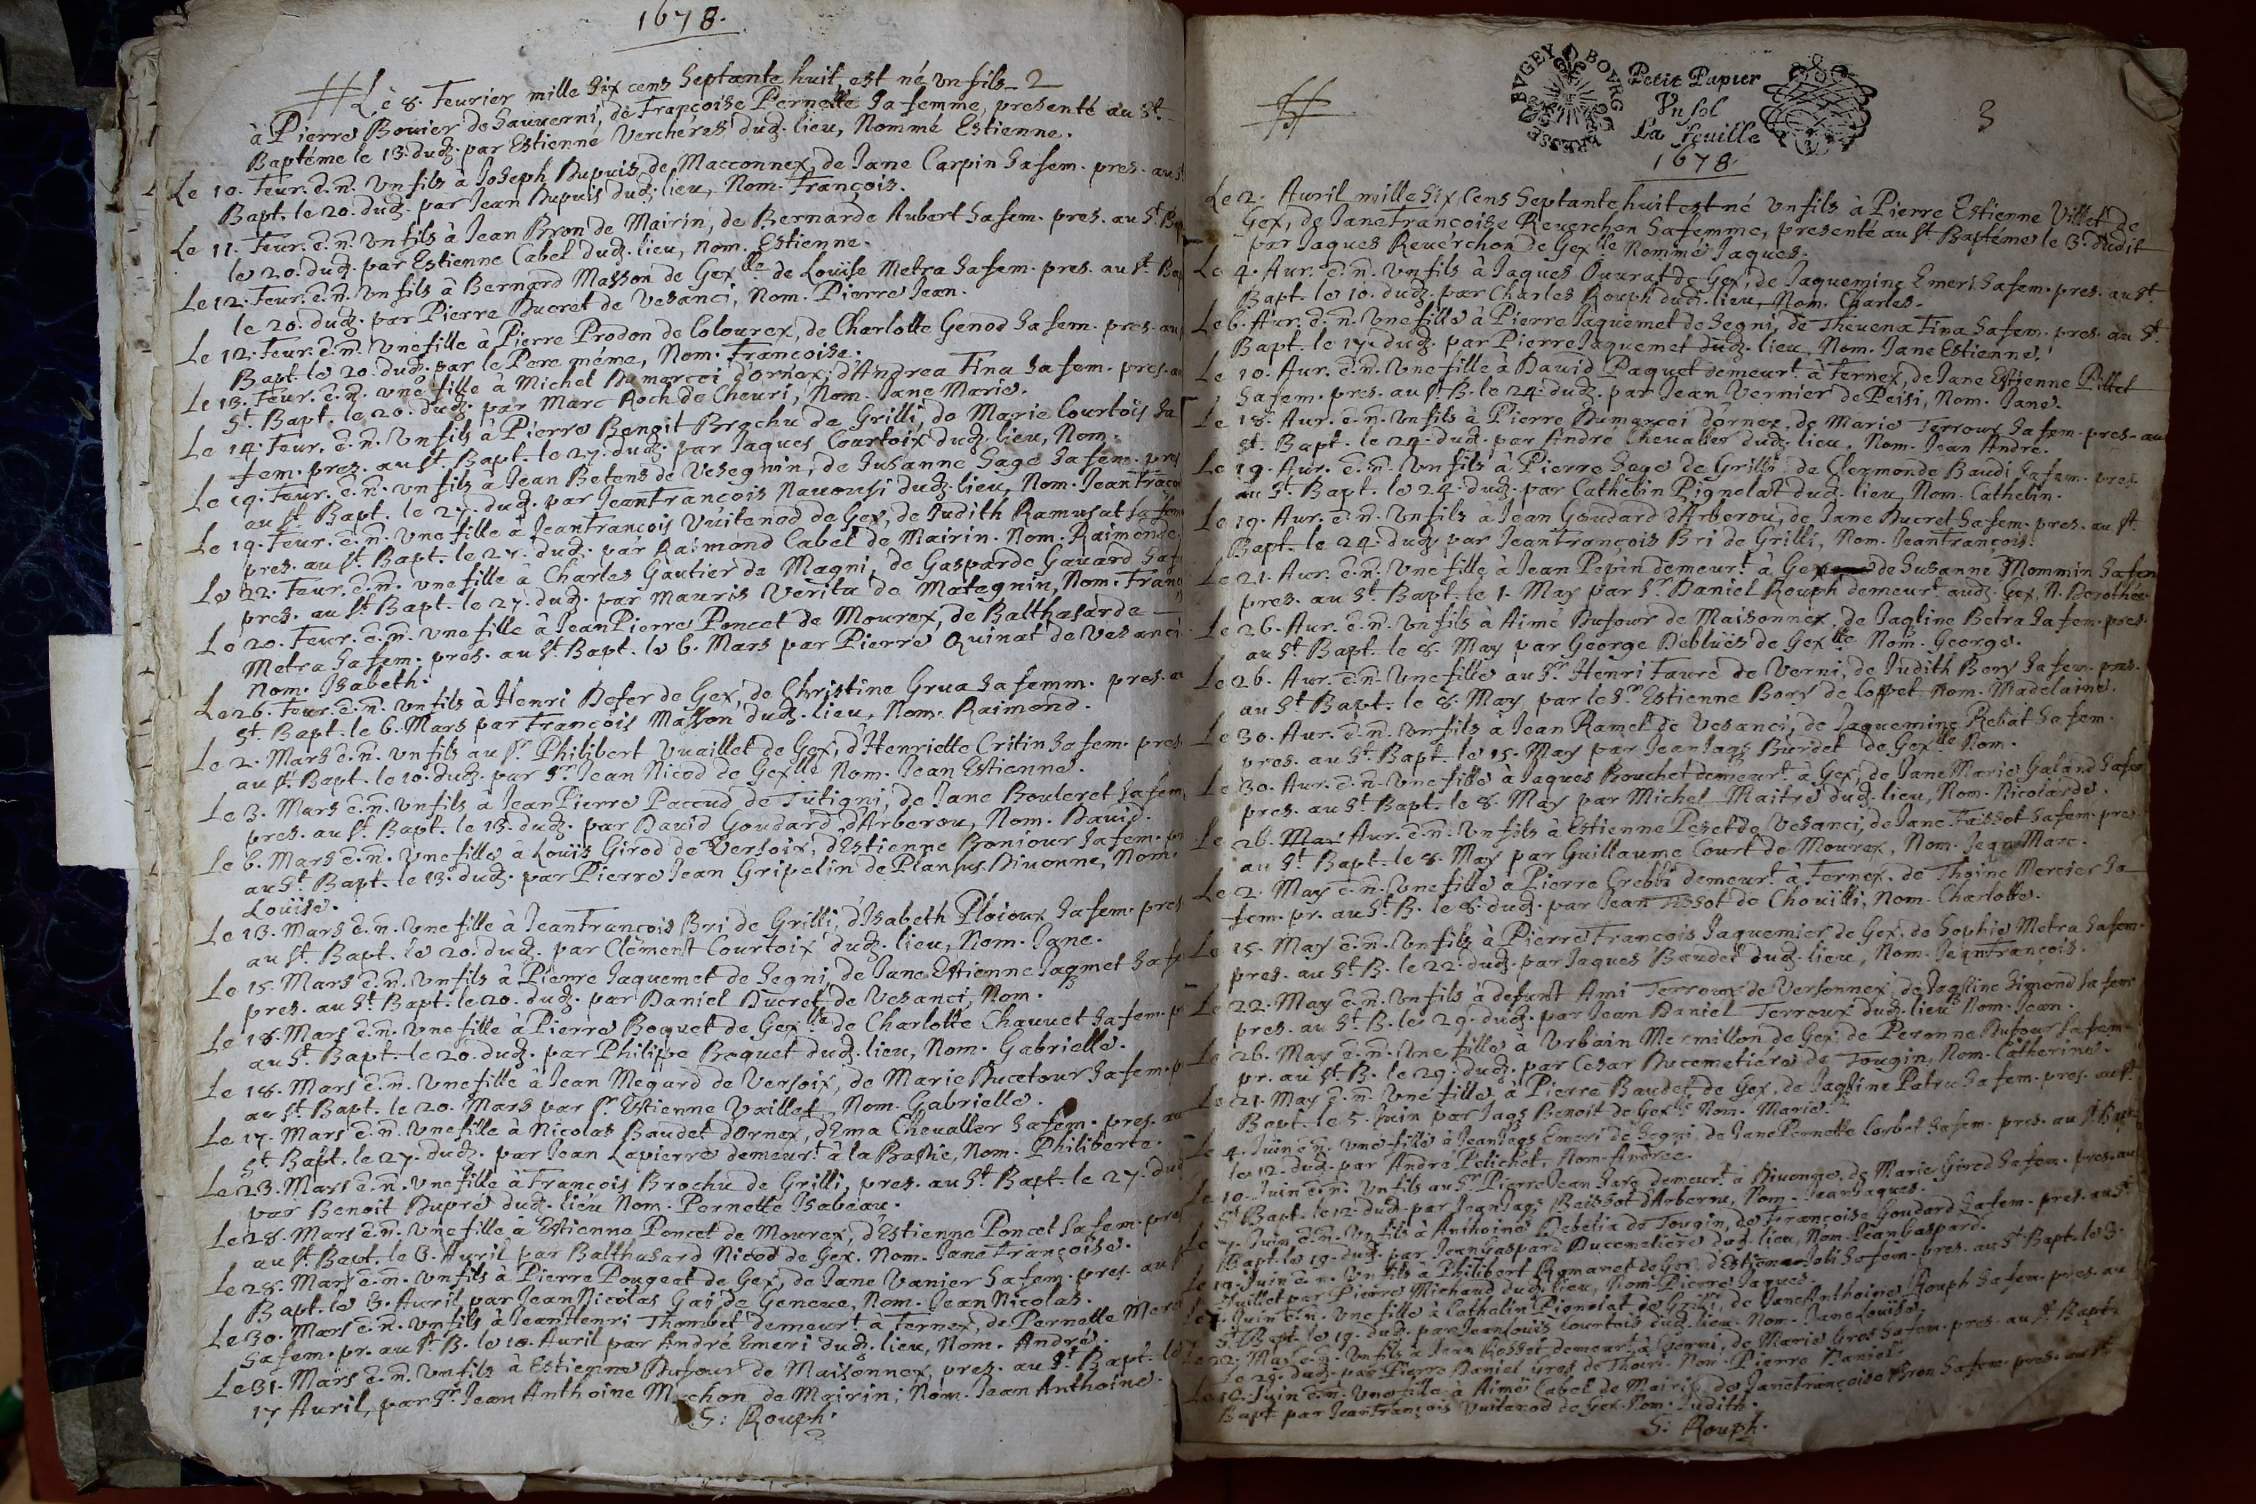 1678.
Le 8. Feurier mille six cens septante huit, est né vn fils 2
à Pierre Bouier de Sauuerni, de Françoise Pernette sa femme, presenté au St.
Baptéme le 13. dud. par Estienne Verchéres dud. lieu, Nommé Estienne.
Le 10. Feur. e. n. vn fils à Joseph Dupuis de Macconnex, de Jane Carpin sa fem. pres. au St
Bapt. le 20. dud. par Jean Dupuis dud. lieu, Nom. François.
Le 11. Feur. e. n. vn fils à Jean Bron de Mairin, de Bernarde Aubert sa fem. pres. au St Bap
le 20. dud. par Estienne Cabel dud. lieu, nom. Estienne.
Le 12. Feur. e. n. vn fils à Bernard Masson de Gex lle de Louïse Metra sa fem. pres. au St. Bap
le 20. dud. par Pierre Ducret de Vesanci, Nom. Pierre Jean.
Le 12. Feur. e. n. vne fille à Pierre Prodon de Colourex, de Charlotte Genod sa fem. pres. au
Bapt. le 20. dud. par le Pere méme, Nom. Françoise.
Le 13. Feur. e. n. vne fille à Michel Dumarcei d'Ornex, d'Andrea Fina sa fem. pres. au
St. Bapt. le 20. dud. par Marc Roch de Cheuri, Nom. Jane Marie.
Le 14. Feur. e. n. vn fils à Pierre Benoit Brochu de Grilli, de Marie Courtois sa
fem. pres. au St. Bapt. le 27. dud. par Jaques Courtoix dud. lieu, Nom.
Le 19. Feur. e. n. vn fils à Jean Betens de Vesegnin, de Susanne Sage sa fem. pres
au St. Bapt. le 27. dud. par Jean François Nauoüsi dud. lieu, Nom. Jean Franço
Le 19. Feur. e. n. vne fille à Jean François Vuitenod de Gex, de Judith Ramusat sa fem
pres. au St. Bapt. le 27. dud. par Raimond Cabel de Mairin. Nom. Raimonde.
Le 22. Feur. e. n. vne fille à Charles Gautier de Magni, de Gasparde Gauard sa f
pres. au St Bapt. le 27. dud. par Mauris Veritu de Mategnin, Nom. Fran
Le 20. Feur. e. n. vne fille à Jean Pierre Poncet de Mourex, de Balthasarde
Metra sa fem. pres. au St. Bapt. le 6. Mars par Pierre Quinat de Vesanci
Nom. Isabeth.
Le 26. Feur. e. n. vn fils à Henri Defer de Gex, de Christine Grua sa femm. pres. au
St. Bapt. le 6. Mars par François Masson dud. lieu, Nom. Raimond.
Le 2. Mars e. n. vn fils au Sr. Philibert Vuaillet de Gex, d'Henriette Critin sa fem. pres
au St. Bapt. le 10. dud. par Sr. Jean Nicod de Gex lle Nom. Jean Estienne.
Le 3. Mars e. n. vn fils à Jean Pierre Paccud de Tutigni, de Jane Bouleret sa fem.
pres. au St. Bapt. le 13. dud. par Dauid Goudard d'Arberou, Nom. Dauid.
Le 6. Mars e. n. vne fille à Louïs Girod de Versoix, d'Estienne Bonjour sa fem. pr
au St. Bapt. le 13. dud. par Pierre Jean Gripelin de Plan sus Diuonne, Nom.
Louïse.
Le 13. Mars e. n. vne fille à Jean François Bri de Grilli, d'Isabeth Ploioux sa fem. pres
au St. Bapt. le 20. dud. par Clément Courtoix dud. lieu, Nom. Jane.
Le 15. Mars e. n. vn fils à Pierre Jaquemet de Segni, de Jane Estienne Jaqmet sa f
pres. au St Bapt. le 20. dud. par Daniel Ducret de Vesanci, Nom.
Le 18. Mars e. n. vne fille à Pierre Boquet de Gex lle de Charlotte Chauuet sa fem. p
au St. Bapt. le 20. dud. par Philippe Boquet dud. lieu, Nom. Gabrielle.
Le 18. Mars e. n. vne fille à Jean Megard de Versoix, de Marie Ducetour sa fem. p
au St. Bapt. le 20. Mars par Sr. Estienne Vaillet, Nom. Gabrielle.
Le 17. Mars e. n. vne fille à Nicolas Baudet d'Ornex, d'Ema Cheuallier sa fem. pres. au
St. Bapt. le 27. dud. par Jean Lapierre demeurt. à la Bastie, Nom. Philiberte.
Le 23. Mars e. n. vne fille à François Brochu de Grilli, pres. au St. Bapt. le 27. dud
par Benoit Dupré dud. lieu Nom. Pernette Isabeau.
Le 28. Mars e. n. vne fille à Estienne Poncet de Mourex, d'Estienne Poncet sa fem. pres
au St. Bapt. le 3. Auril par Balthasard Nicod de Gex. Nom. Jane Françoise.
Le 28. Mars e. n. vn fils à Pierre Pougeat de Gex, de Jane Vanier sa fem. pres. au S
Bapt. le 3. Auril par Jean Nicolas Gai de Geneue, Nom. Jean Nicolas.
Le 30. Mars e. n. vn fils à Jean Henri Thombet demeurt. à Fernex, de Pernette Merci
sa fem. pr. au St. B. le 10. Auril par André Emeri dud. lieu, Nom. André.
Le 31. Mars e. n. vn fils à Estienne Dufour de Maisonnex, pres. au St Bapt. le
17 Auril, par Sr. Jean Anthoine Machon de Mairin, Nom. Jean Anthoine.
S: Rouph.
BVGEY BOVRG BRESSE
Petit Papier
Vn sol
La feuille
3
1678
Le 2. Auril mille six cens septante huit est né vn fils à Pierre Estienne Villet de
Gex, de Jane Françoise Reuerchon sa femme, presenté au St. Baptéme le 3. dudit
par Jaques Reuerchon de Gex lle Nommé Jaques.
Le 4. Aur. e. n. vn fils à Jaques Duurat de Gex, de Jaquemine Emeri sa fem. pres. au St.
Bapt. le 10. dud. par Charles Rouph dud. lieu, Nom. Charles.
Le 6. Aur. e. n. vne fille à Pierre Jaquemet de Segni, de Theuena Fina sa fem. pres. au St.
Bapt. le 17. dud. par Pierre Jaquemet dud. lieu, Nom. Jane Estienne.
Le 10. Aur. e. n. vne fille à Dauid Paquet demeurt. à Fernex, de Jane Estienne Pittet
sa fem. pres. au St. B. le 24. dud. par Jean Vernier de Peisi, Nom. Jane.
Le 18. Aur. e. n. vn fils à Pierre Dumarcei d'Ornex, de Marie Terroux sa fem. pres. au
St. Bapt. le 24. dud. par André Cheuallier dud. lieu. Nom. Jean André.
Le 19. Aur. e. n. vn fils à Pierre Sage de Grilli, de Clermonde Baudi sa fem. pres.
au St. Bapt. le 24. dud. par Cathelin Pignolat dud. lieu, Nom. Cathelin.
Le 19. Aur. e. n. vn fils à Jean Goudard d'Arberou, de Jane Ducret sa fem. pres. au St.
Bapt. le 24. dud. par Jean François Bri de Grilli, Nom. Jean François.
Le 21. Aur. e. n. vne fille à Jean Pepin demeurt. à Gex de Susanne Mommin sa fem
pres. au St Bapt. le 1. May par Sr. Daniel Rouph demeurt. aud. Gex, N. Dorothée.
Le 26. Aur. e. n. vn fils à Aimé Dufour de Maisonnex, de Jaqline Betra sa fem. pres.
au St Bapt. le 8. May par George Deblüis de Gex lle Nom. George.
Le 26. Aur. e. n. vne fille au Sr. Henri Fauré de Verni, de Judith Bory sa fem. pres.
au St. Bapt. le 8. May, par le Sr. Estienne Bory de Coppet Nom. Madelaine.
Le 30. Aur. e. n. vn fils à Jean Ramel de Vesanci, de Jaquemine Rebat sa fem.
pres. au St. Bapt. le 15. May par Jean Jaqs Burdet de Gex lle Nom.
Le 30. Aur. e. n. vne fille à Jaques Bouchet demeurt. à Gex, de Jane Marie Galand sa fem
pres. au St Bapt. le 8. May par Michel Maitre dud. lieu, Nom. Nicolarde.
Le 26. May Aur. e. n. vn fils à Estienne Peset de Vesanci, de Jane Faissot sa fem. pres.
au St Bapt. le 8. May par Guillaume Court de Mourex, Nom. Jean Marc.
Le 2. May e. n. vne fille à Pierre Crebbi demeurt. à Fernex, de Thoine Mercier sa
fem. pr. au St. B. le 8. dud. par Jean Tissot de Chouïlli, Nom. Charlotte.
Le 15. May e. n. vn fils à Pierre François Jaquemier de Gex, de Sophie Metra sa fem.
pres. au St. B. le 22. dud. par Jaques Baudet dud. lieu, Nom. Jean François.
Le 22. May e. n. vn fils à defunt Ami Terroux de Versonnex, de Jaqline Simond sa fem
pres. au St. B. le 29. dud. par Jean Daniel Terroux dud. lieu Nom. Jean.
Le 26. May e. n. vne fille à Vrbain Mermillon de Gex, de Peronne Dufour sa fem.
pr. au St. B. le 29. dud. par Cesar Ducemetiere de Tougin, Nom. Catherine.
Le 21. May e. n. vne fille à Pierre Baudet de Gex, de Jaqline Patru sa fem. pres. au St.
Bapt. le 5. Juin par Jaqs Benoit de Gex lle Nom. Marie.
Le 4. Juin e. n. vne fille à Jean Jaqs Emeri de Segni, de Jane Pernette Corbet sa fem. pres. au St. Bapt
le 12. dud. par André Pelichet, Nom. Andrée.
Le 10. Juin e. n. vn fils au Sr. Pierre Jean demeurt. à Diuonne, de Marie Girod sa fem. pres. au
St Bapt. le 12. dud. par Jean Jaqs Baissot d'Arberou, Nom. Jean Jaques.
Le 7. Juin e. n. vn fils à Anthoine Debelia de Tougin, de Françoise Goudard sa fem. pres. au St
Bapt. le 19. dud. par Jean Gaspard Ducemetiere dud. lieu, Nom. Jean Gaspard.
Le 19. Juin e. n. vn fils à Philibert Romanet de Gex, d'Estienna Joli sa fem. pres. au St Bapt. le 3.
Juillet par Pierre Michaud dud. lieu, Nom. Pierre Jaques.
Le 7. Juin e. n. vne fille à Cathelin Pignolat de Grilli, de Jane Anthoine Rouph sa fem. pres. au
St Bapt. le 19. dud. par Jean Louïs Courtois dud. lieu. Nom. Jane Louïse.
Le 22. May e. n. vn fils à Jean Gosset demeurt. à Corni, de Marie Gros sa fem. pres. au St. Bapt
le 29. dud. par Pierre Daniel Gros de Thoiri. Nom. Pierre Daniel.
Le 12. Juin e. n. vne fille à Aimé Cabel de Mairin de Jane Françoise Bron sa fem. pres. au St
Bapt par Jean François Vuitenod de Gex. Nom. Judith.
S: Rouph.